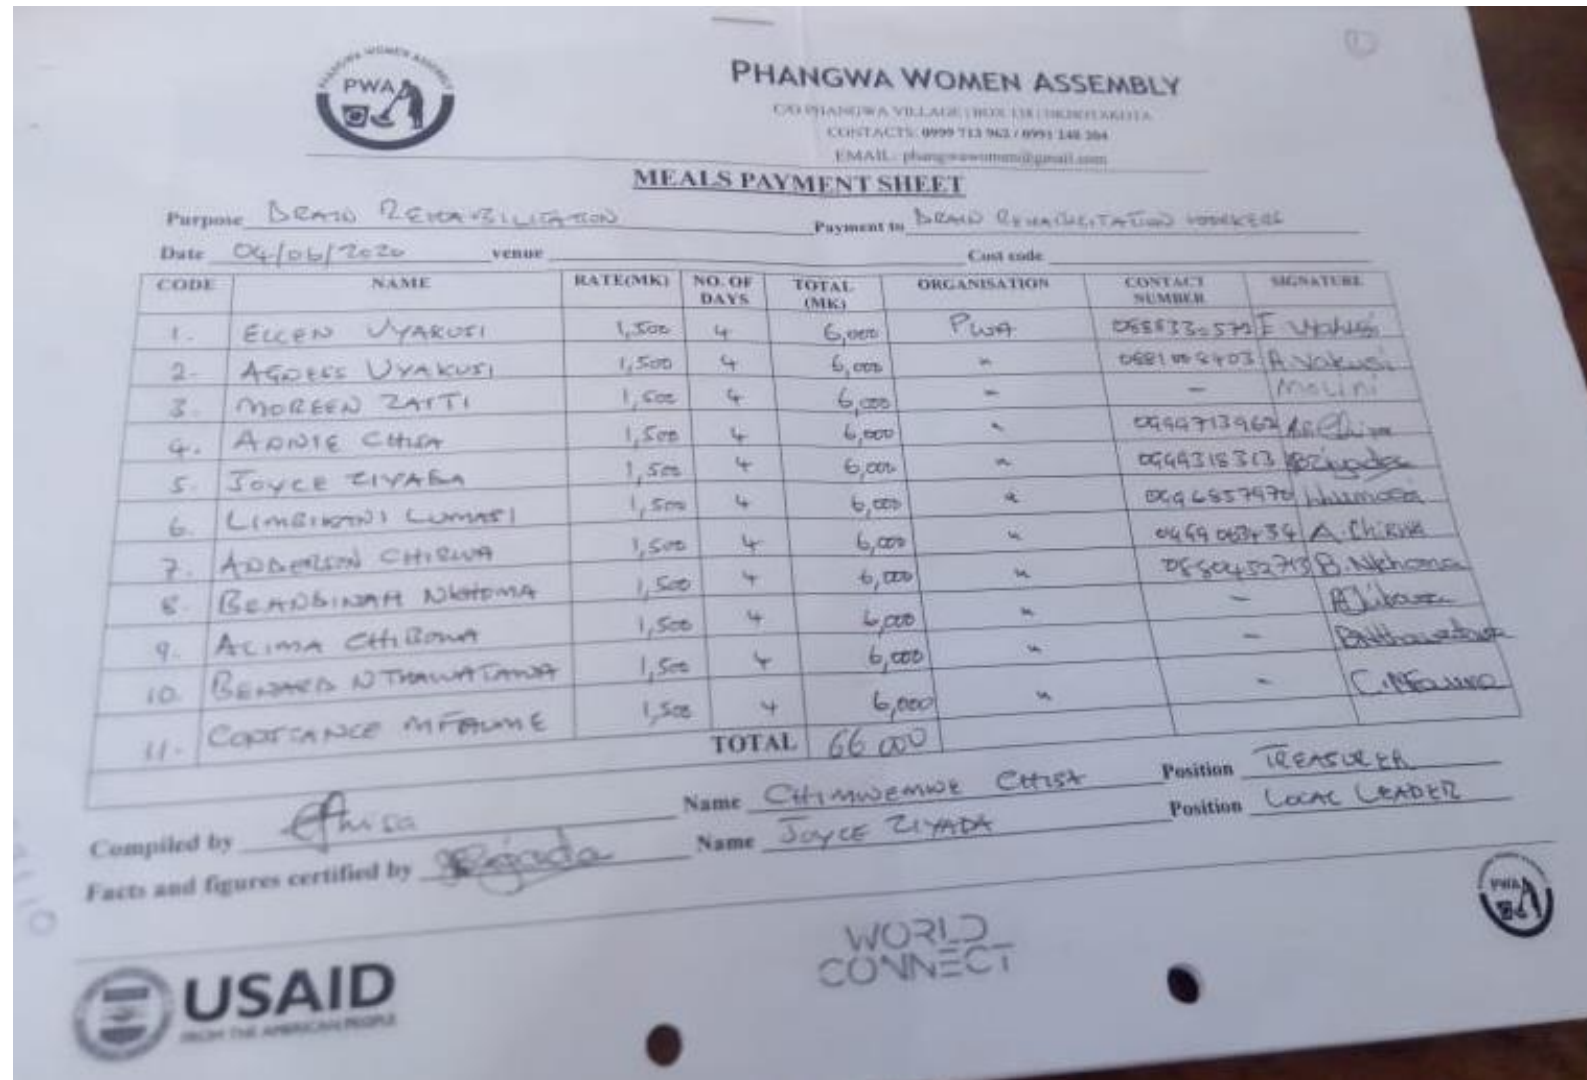 PWA
PHANGWA WOMEN ASSEMBLY
C/O PHANGWA VILLAGE | BOX 138 | NKHOTAKOTA
CONTACTS: 0999 713 962 / 0991 148 304
EMAIL: phangwawomen@gmail.com
MEALS PAYMENT SHEET
Purpose DRAIN REHABILITATION Payment to DRAIN REHABILITATION WORKERS
Date 04/06/2020 venue Cost code
CODE NAME RATE(MK) NO. OF DAYS TOTAL (MK) ORGANISATION CONTACT NUMBER SIGNATURE
1. ELLEN VYAKUSI 1,500 4 6,000 PWA E Vyakusi
2. AGNESS VYAKUSI 1,500 4 6,000 " A. Vakusi
3. MOREEN ZAITI 1,500 4 6,000 " - Molini
4. ANNIE CHISA 1,500 4 6,000 " 0999713962
5. JOYCE ZIYADA 1,500 4 6,000 " 0999318313
6. LIMBIKANI LUMASI 1,500 4 6,000 " 0996857970
7. ANDERSON CHIRWA 1,500 4 6,000 " A. CHIRWA
8. NKHOMA 1,500 4 6,000 " 0880452713 B. Nkhoma
9. ALIMA CHIBOWA 1,500 4 6,000 " -
10. NTHAWATAWA 1,500 4 6,000 " -
11. CONSTANCE MFAUME 1,500 4 6,000 " - C. Mfaume
TOTAL 66 000
Compiled by Chisa Name CHIMWEMWE CHISA Position TREASURER
Facts and figures certified by Name JOYCE ZIYADA Position LOCAL LEADER
USAID
FROM THE AMERICAN PEOPLE
WORLD
CONNECT
PWA